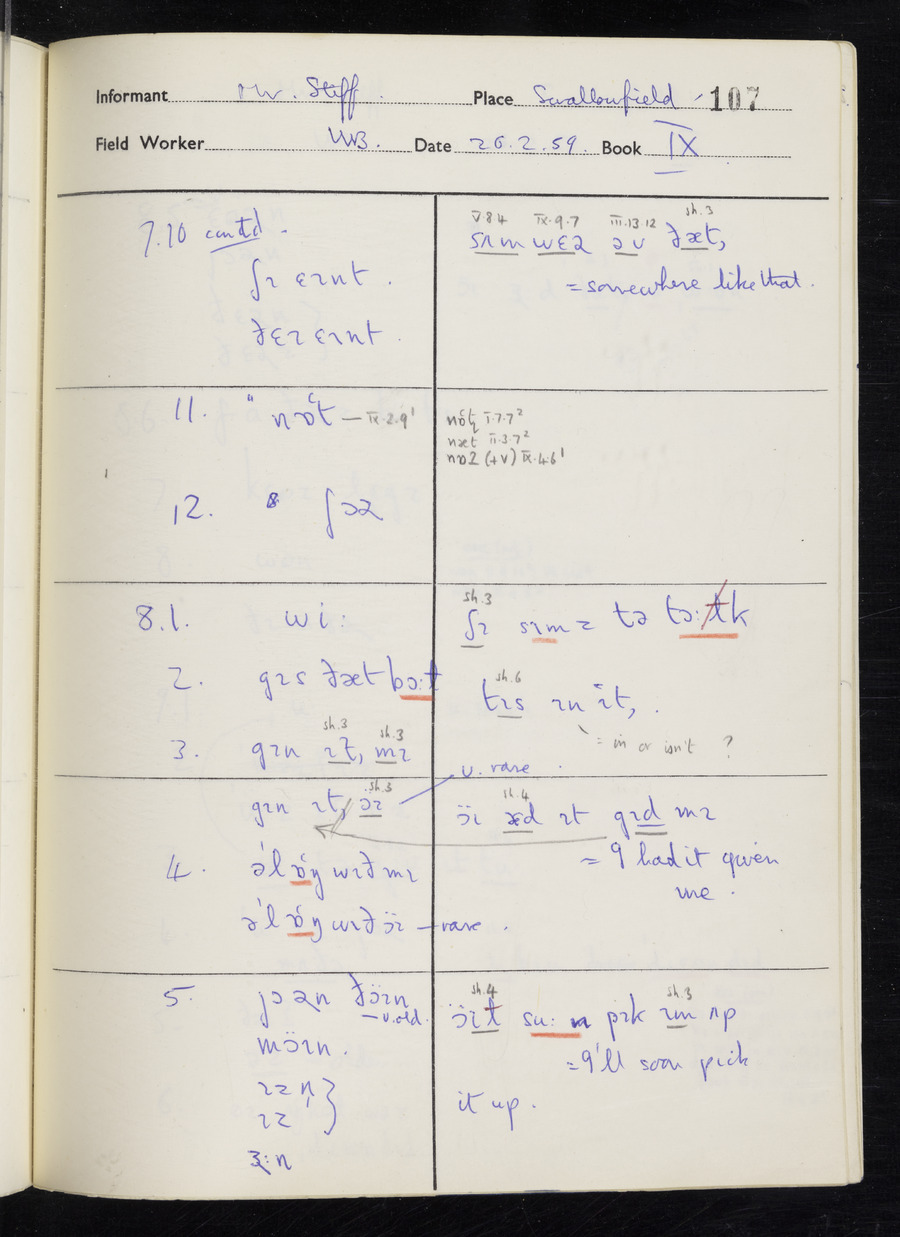 Informant Mr. Stiff. Place Swallowfield 107
Field Worker WB. Date 26.2.59. Book IX
7.10 contd.
ʃɪ ɛɪnt.
ðɛɪ ɛɪnt.
V.8.4 IX.9.7 III.13.12 sh.3
sʌm wɛə əv ðæt,
= somewhere like that.
11. " nɒt — IX.2.9¹
nɒt I.7.7²
næt II.3.7²
nɒʔ (+V) IX.4.6¹
12. 8 ʃəʔ
8.1. wi:
sh.3
ʃɪ sɪmz tə tɔ:k
2. gɪs ðæt bɔ:ɫ
sh.6
tɪs ɪn ɪt,.
= in or isn't ?
sh.3 sh.3
3. gɪn ɪt, mɪ
sh.3
gɪn ɪt, ɔɪ
v. rare.
sh.4
ɔ̈ɪ æd ɪt gɪd mɪ
= I had it given
me.
4. əlɒŋ wɪð mɪ
əlɒŋ wɪð ɔ̈ɪ — rare.
5. jɔən ðɔ̈ɪn — v. old.
mɔ̈ɪn.
ɪz n̩ }
ɪz }
ɜ:n
sh.4 sh.3
ɔ̈ɪɫ su:n pɪk ɪm ʌp
= I'll soon pick
it up.